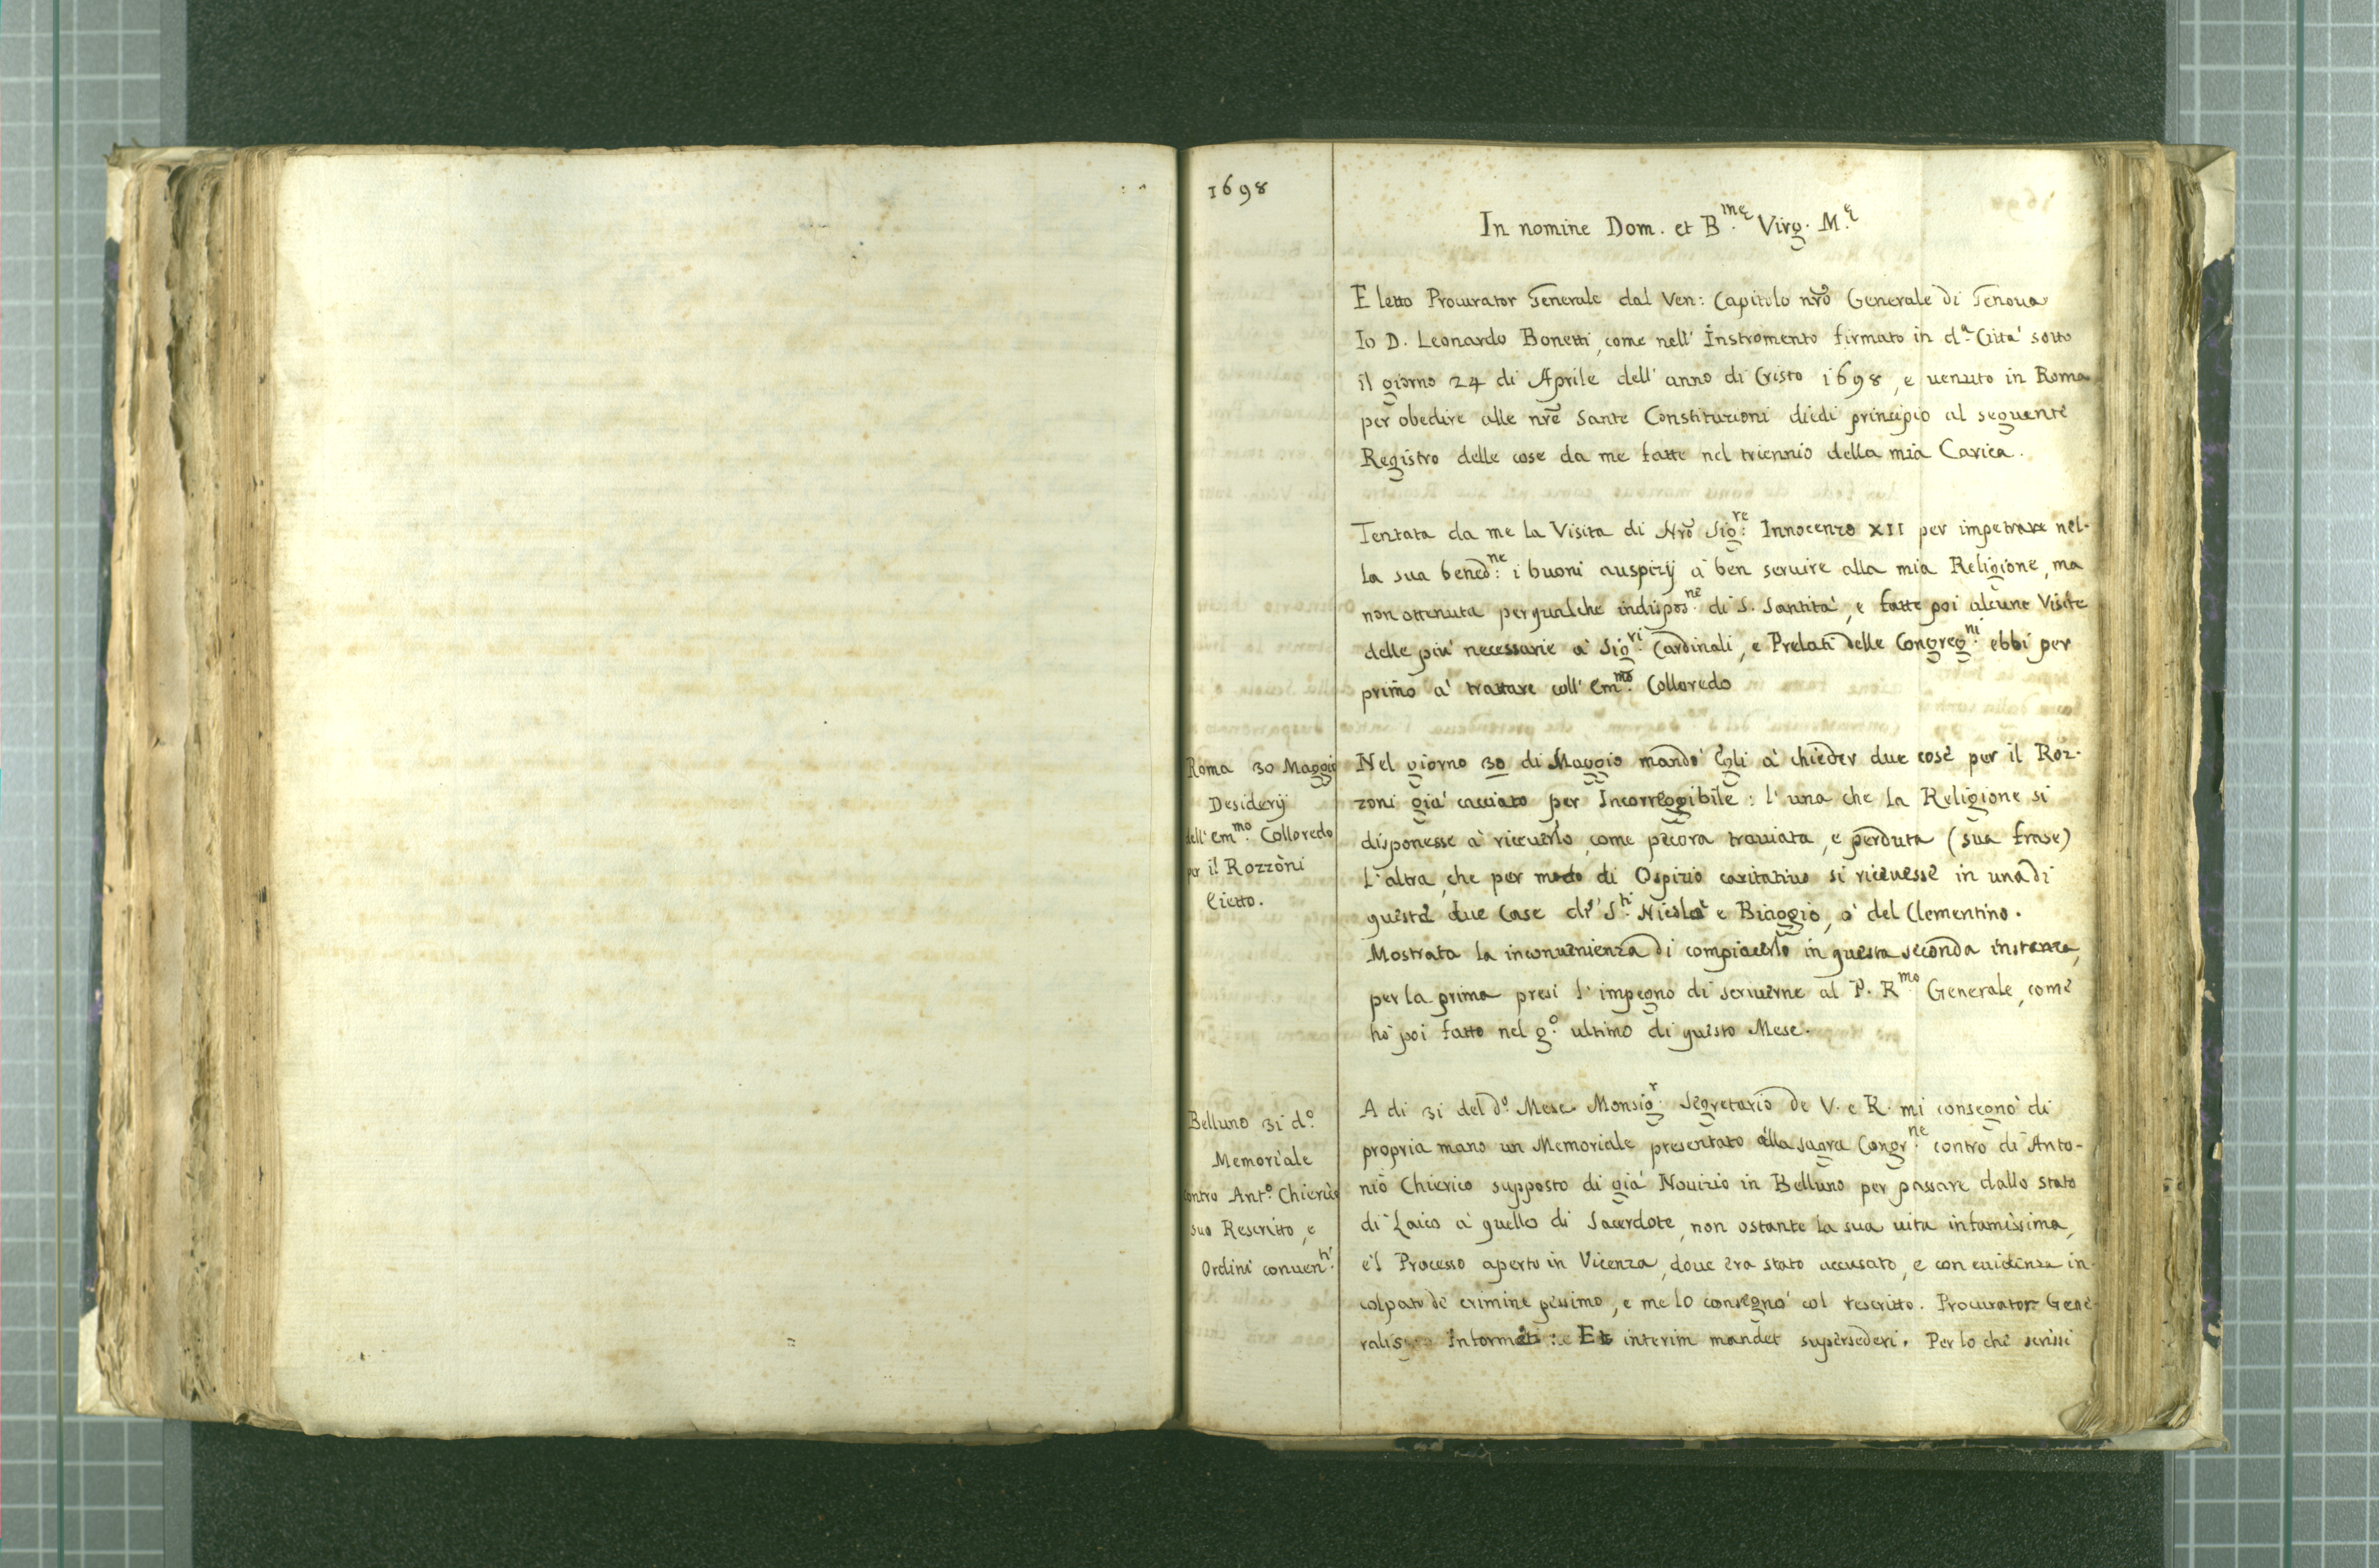 1698
In nomine Dom. et B.mę Virg. M.ę
Eletto Procurator Generale dal Ven: Capitolo nr̃o Generale di Genoua
Io D. Leonardo Bonetti, come nell' Instromento firmato in d.a Città sotto
il giorno 24 di Aprile dell' anno di Cristo 1698, e uenuto in Roma
per obedire alle nr̃e Sante Constituzioni diedi principio al seguente
Registro delle cose da me fatte nel triennio della mia Carica.
Tentata da me la Visita di Nr̃o Sig:re Innocenzo XII per impetrare nel-
la sua bened:ne i buoni auspizij à ben seruire alla mia Religione, ma
non ottenuta per qualche indispos.ne di S. Santità, e fatte poi alcune Visite
delle più necessarie à Sig.ri Cardinali, e Prelati delle Congreg.ni ebbi per
primo à trattare coll' Em.mo Colloredo
Roma 30 Maggio
Desiderij
dell' Em.mo Colloredo
per il Rozzoni
Eietto.
Nel giorno 30 di Maggio mandò Egli à chieder due cose per il Roz-
zoni già cacciato per Incorregibile: l' una che la Religione si
disponesse à riceuerlo, come pecora trauiata, e perduta (sua frase)
L'altra, che per modo di Ospizio caritatiuo si riceuesse in una di
queste due Case di S.ti Nicolò e Biaggio, ò del Clementino.
Mostrata la inconuenienza di compiacerlo in questa seconda instanza,
per la prima presi l' impegno di scriuerne al P. R.mo Generale, come
hò poi fatto nel g.o ultimo di questo Mese.
Belluno 31 d.o
Memoriale
contro Ant.o Chierico
suo Rescritto, e
Ordini conuen.ti
A di 31 del d.o Mese Monsig.r Segretario de V. e R. mi consegnò di
propria mano un Memoriale presentato alla sagra Congr.ne contro di Anto-
nio Chierico supposto di già Nouizio in Belluno per passare dallo stato
di Laico à quello di Sacerdote, non ostante la sua uita infamissima,
e'l Processo aperto in Vicenza, doue era stato accusato, e con euidenza in-
colpato de crimine pessimo, e me lo consegnò col rescritto. Procurator Gene-
ralis Informet: Et interim mandet supersederi. Per lo che scrissi